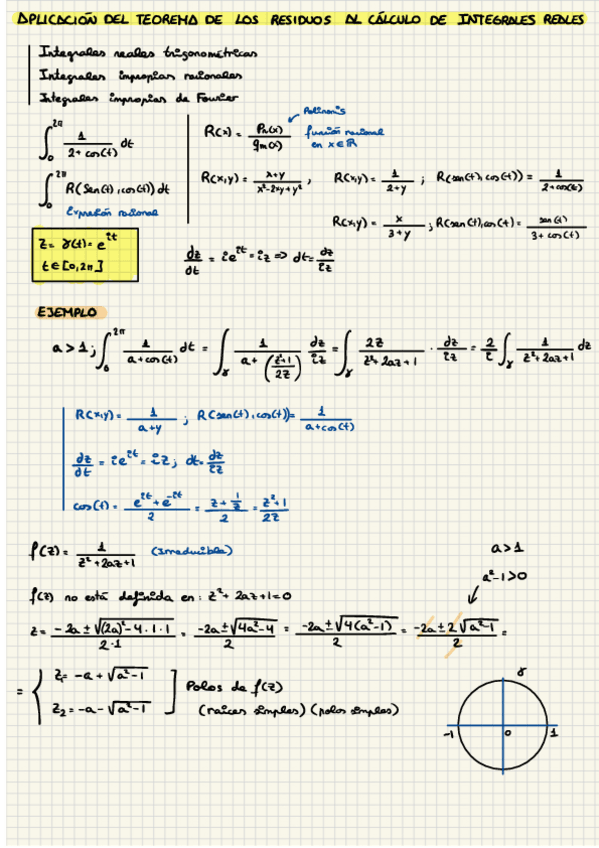 APLICACIÓN DEL TEOREMA DE LOS RESIDUOS AL CÁLCULO DE INTEGRALES REALES
Integrales reales trigonométricas
Integrales impropias racionales
Integrales impropias de Fourier
∫₀^{2π} 1/(2+cos(t)) dt
R(x) = Pn(x)/qm(x)
Polinomis
función racional
en x∈ℝ
∫₀^{2π} R(sen(t),cos(t)) dt
Expresión racional
R(x,y) = (x+y)/(x²-2xy+y²) , R(x,y) = 1/(2+y) ; R(sen(t),cos(t)) = 1/(2+cos(t))
R(x,y) = x/(3+y) ; R(sen(t),cos(t)) = sen(t)/(3+cos(t))
z = γ(t) = e^{it}
t∈[0,2π]
dz/dt = ie^{it} = iz => dt = dz/iz
EJEMPLO
a>1 ; ∫₀^{2π} 1/(a+cos(t)) dt = ∫_γ 1/(a+((z²+1)/2z)) dz/iz = ∫_γ 2z/(z²+2az+1) · dz/iz = 2/i ∫_γ 1/(z²+2az+1) dz
R(x,y) = 1/(a+y) ; R(sen(t),cos(t)) = 1/(a+cos(t))
dz/dt = ie^{it} = iz ; dt = dz/iz
cos(t) = (e^{it}+e^{-it})/2 = (z+1/z)/2 = (z²+1)/2z
f(z) = 1/(z²+2az+1) (Irreducible)
a>1
a²-1>0
f(z) no está definida en : z²+2az+1=0
z = (-2a±√((2a)²-4·1·1))/(2·1) = (-2a±√(4a²-4))/2 = (-2a±√(4(a²-1)))/2 = (-2a±2√(a²-1))/2 =
= { z₁ = -a+√(a²-1)
z₂ = -a-√(a²-1) ]
Polos de f(z)
(raíces simples) (polos simples)
γ
-1 0 1